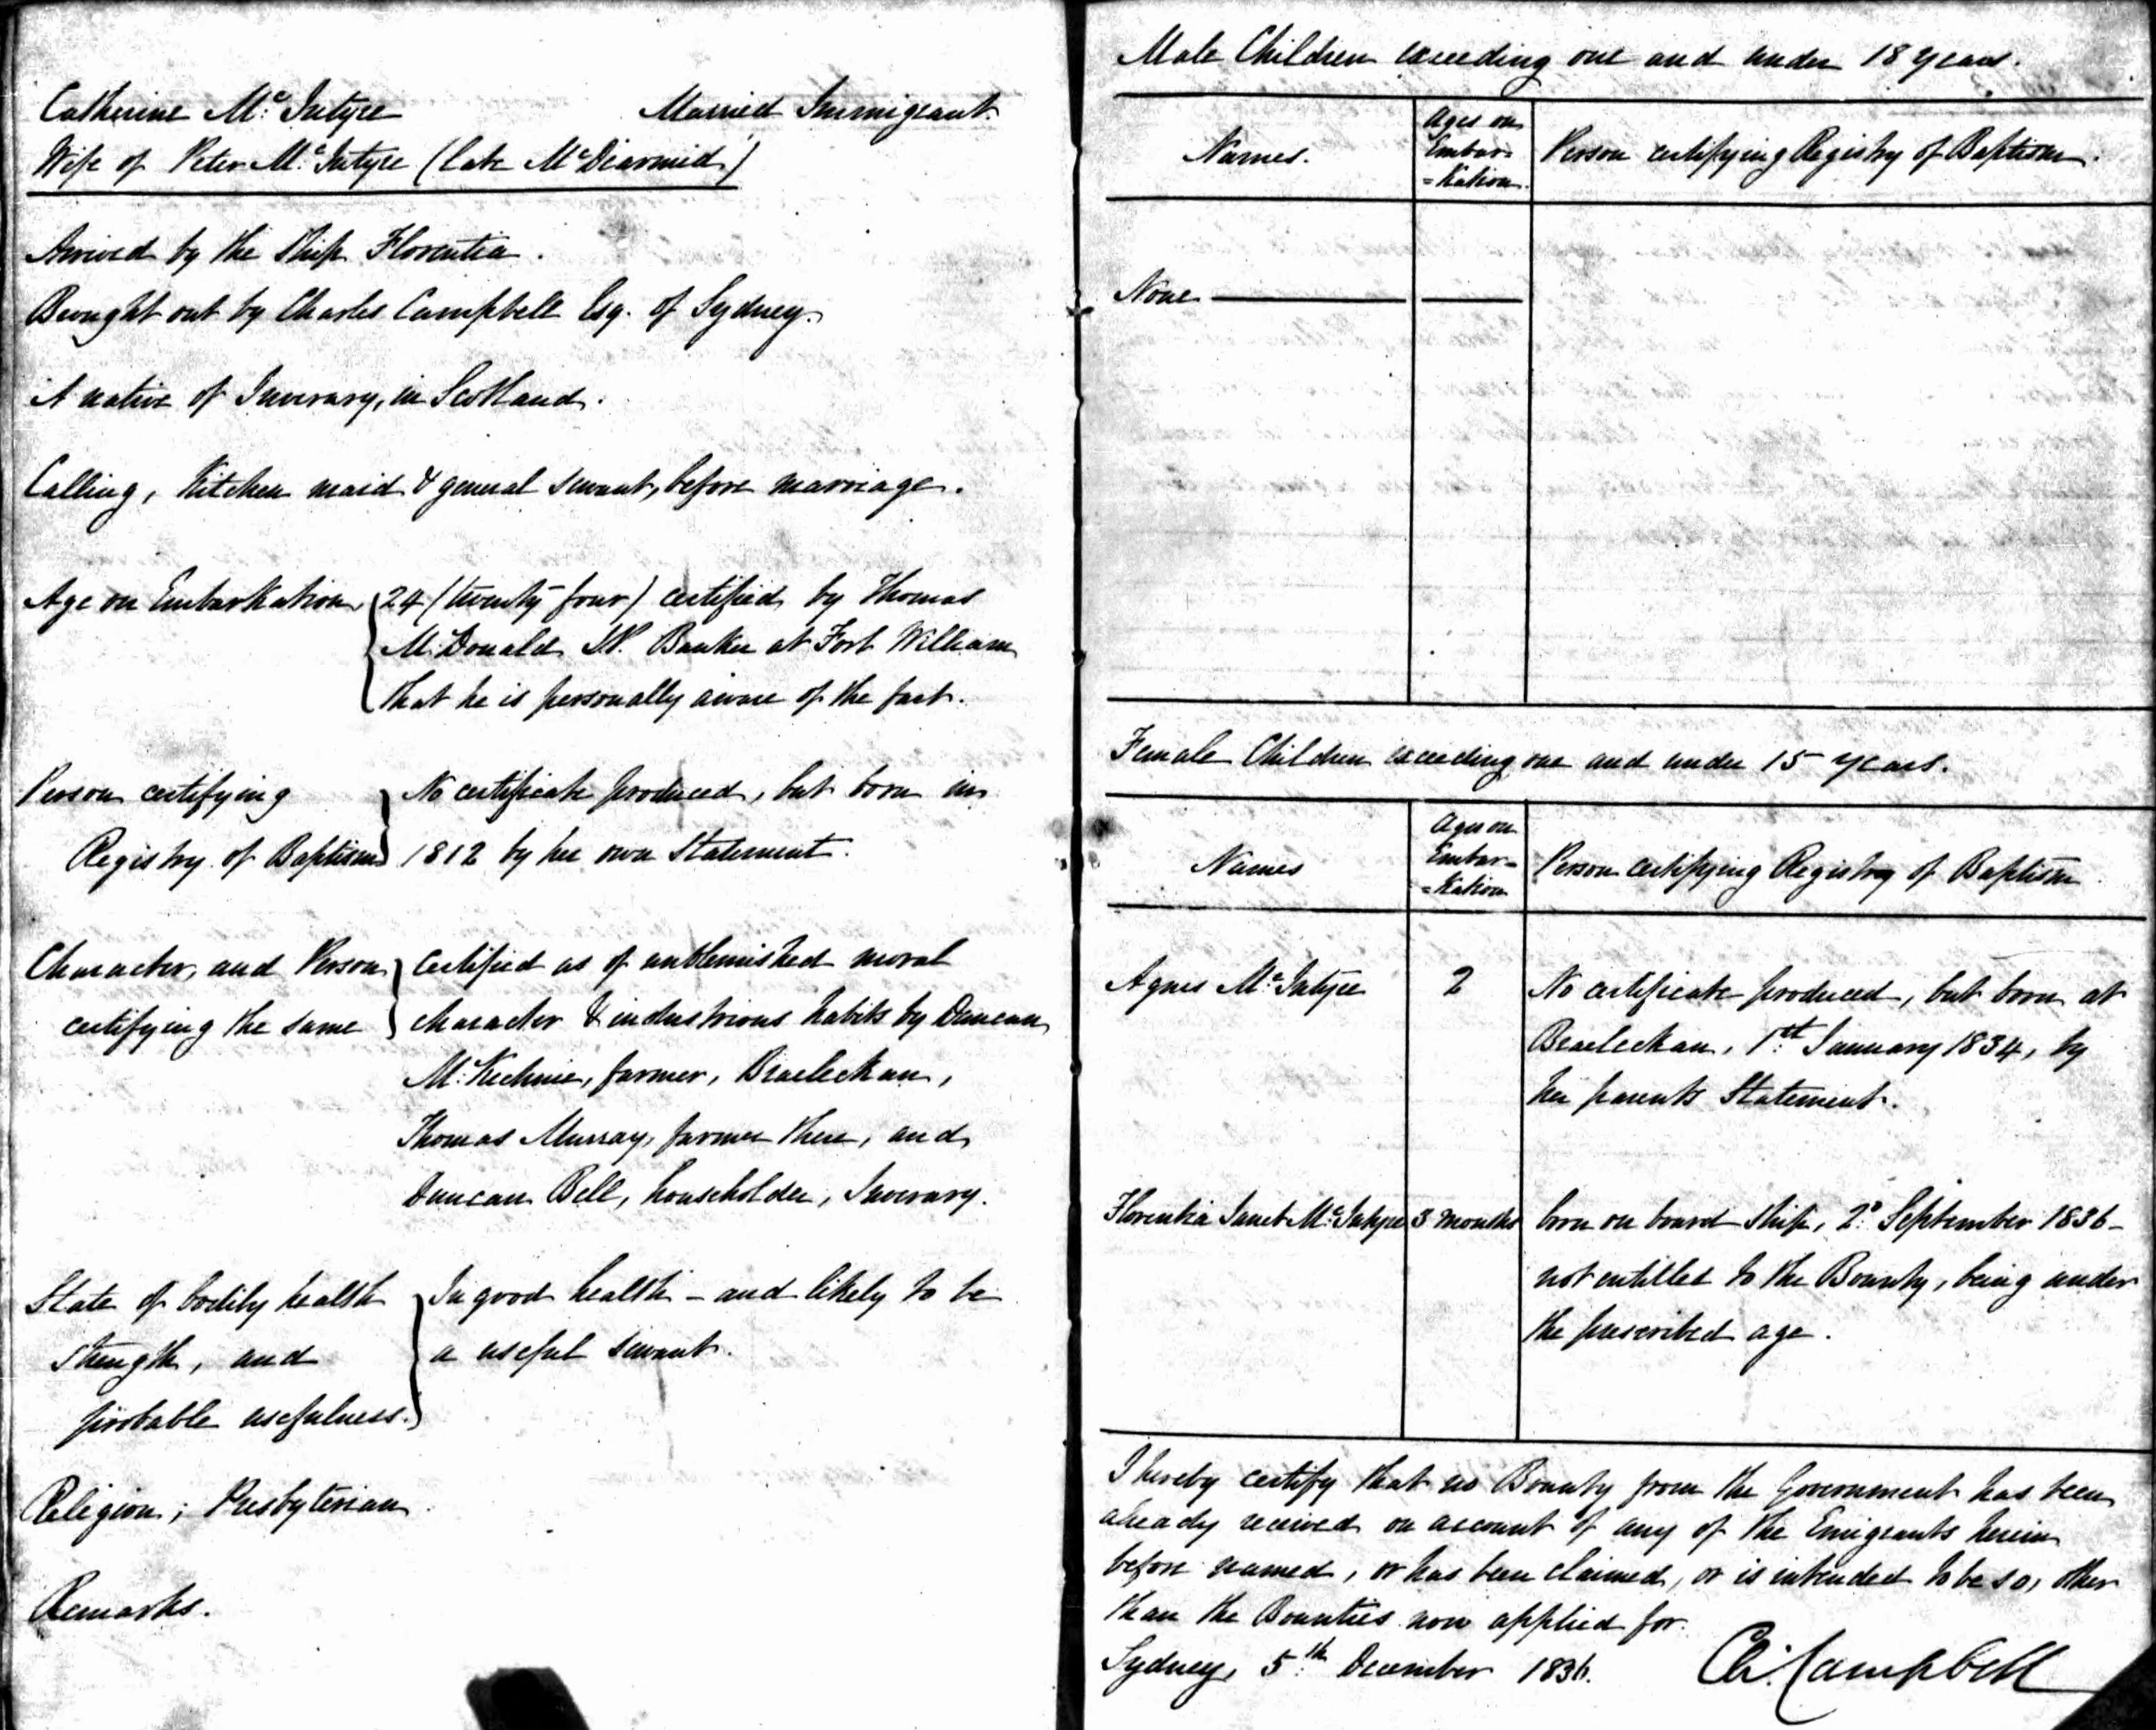 Catherine McIntyre Married Immigrant
Wife of Peter McIntyre (late McDiarmid)
Arrived by the Ship Florentia.
Brought out by Charles Campbell Esq. of Sydney.
A native of Inverary, in Scotland.
Calling, Kitchen maid & general servant, before marriage.
Age on Embarkation, 24 (twenty four) certified by Thomas
McDonald J.P. Banker at Fort William
that he is personally aware of the fact.
Person certifying No certificate produced, but born in
Registry of Baptism 1812 by her own Statement.
Character, and Person certified as of unblemished moral
certifying the same character & industrious habits by Duncan
McKechnie, farmer, Braeleckan,
Thomas Murray, farmer there, and
Duncan Bell, householder, Inverary.
State of bodily health In good health - and likely to be
strength, and a useful servant.
probable usefulness.
Religion; Presbyterian.
Remarks.
Male Children exceeding one and under 18 years.
Names. Ages on Embar=
=kation. Person certifying Registry of Baptism.
None
Female Children exceeding one and under 15 years.
Names Ages on Embar=
=kation Person certifying Registry of Baptism.
Agnes McIntyre 2 No certificate produced, but born at
Braeleckan, 1st January 1834, by
her parents Statement.
Florentia Janet McIntyre 3 months born on board Ship, 2d September 1836 -
not entitled to the Bounty, being under
the prescribed age.
I hereby certify that no Bounty from the Government has been
already received on account of any of the Emigrants herein
before named, or has been claimed, or is intended to be so, other
than the Bounties now applied for.
Sydney, 5th December 1836. Ch. Campbell